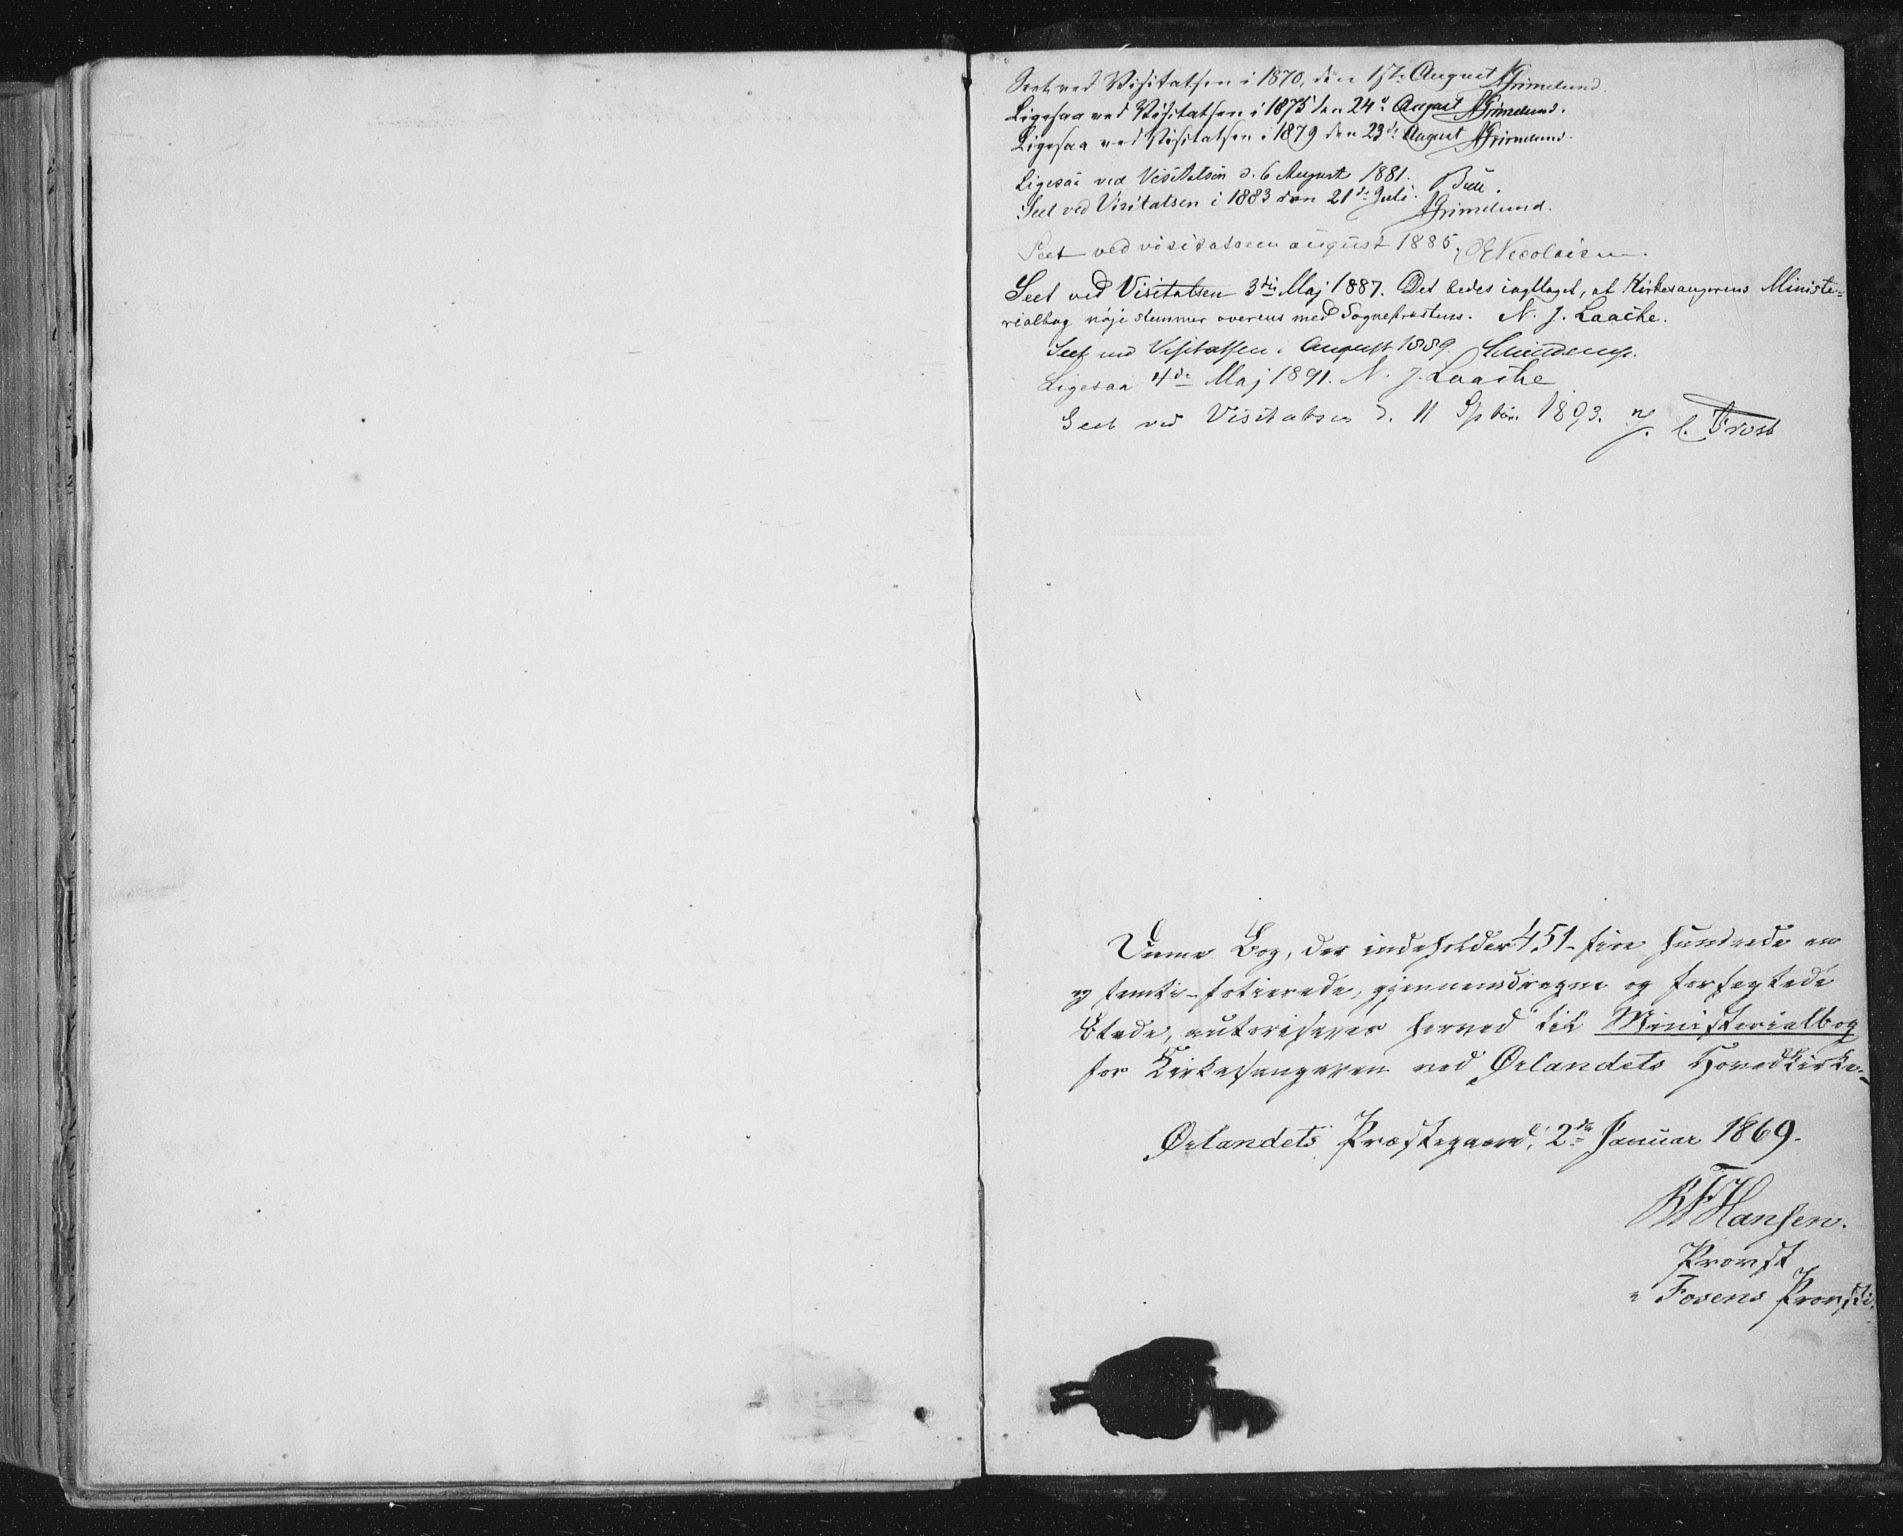 Seet ved Visitatsen i 1870, den 1ste August AGrimelund.
Ligesaa ved Visitatsen i 1875 den 24de August AGrimelund.
Ligesaa ved Visitatsen i 1879 den 23de August AGrimelund.
Ligesaa ved Visitatsen d. 6 August 1881.
Seet ved Visitatsen i 1883 den 21de Juli. AGrimelund.
Seet ved visitatsen august 1885.
Seet ved Visitatsen 3die Maj 1887. Det bedes iagttaget, at Kirkesangerens Ministe-
rialbog nøje stemmer overens med Sogneprestens. N. J. Laache.
Seet ved Visitatsen i August 1889.
Ligesaa 4de Maj 1891. N. J. Laache
Seet ved Visitatsen d. 11 Sptbr. 1893. J. C. Frost
Denne Bog, der indeholder 451 - fire hundrede en
og femti - folierede, gjennemdragne og forseglede
Blade, autoriseres herved til Ministerialbog
for Kirkesangeren ved Ørlandets Hovedkirke.
Ørlandets Præstegaard, 2de Januar 1869.
Hansen.
Provst
i Fosens Provsti.